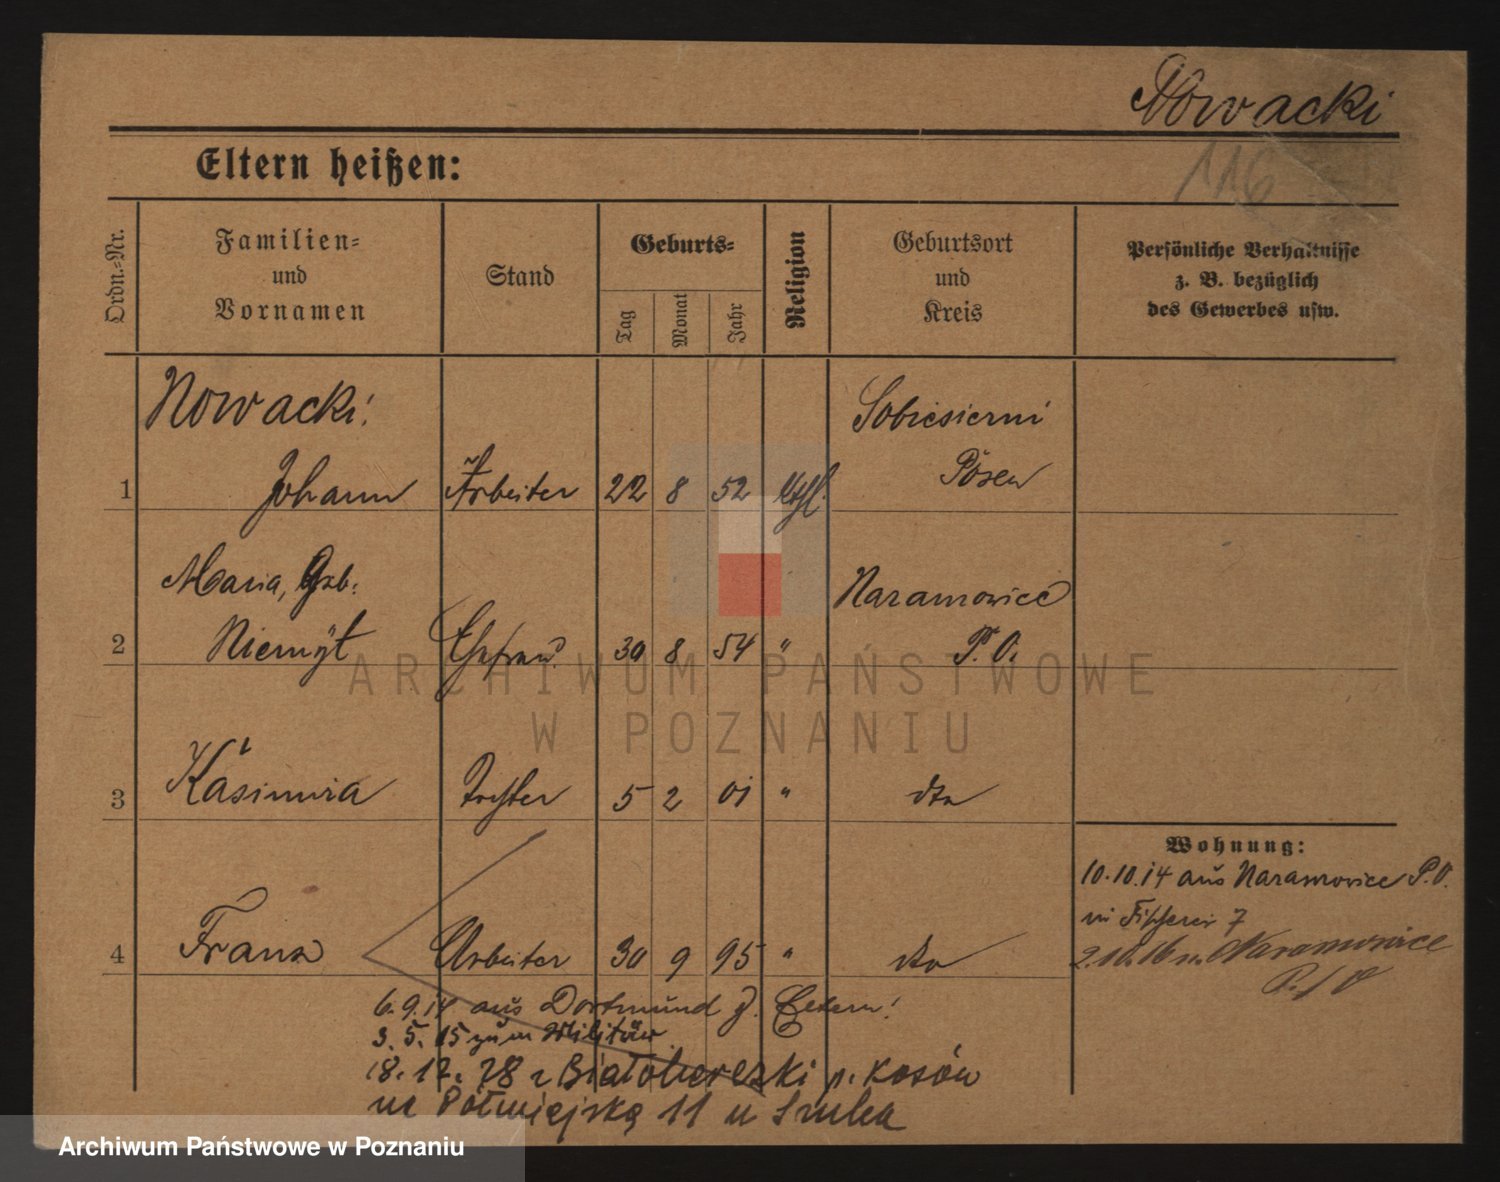 Nowacki
116
Eltern heißen:
Ordn.-Nr.
Familien-
und
Vornamen
Stand
Geburts-
Tag
Monat
Jahr
Religion
Geburtsort
und
Kreis
Persönliche Verhältnisse
z. B. bezüglich
des Gewerbes usw.
Nowacki
Sobiesierni
1 Johann Arbeiter 22 8 52 Kthl. Posen
Maria, Geb. Naramowice
2 Ehefrau 30 8 54 " P. O.
3 Kasimira Tochter 5 2 01 " dto
Wohnung:
10.10.14 aus Naramowice P.O.
Fischerei 7
4 Franz Arbeiter 30 9 95 " dto
Naramowice
P. O
6.9.14 aus Dortmund z. Eltern!
3.5.15 zum Militär
p. Kosów
na Półwiejską 11 u
ARCHIWUM PAŃSTWOWE
W POZNANIU
Archiwum Państwowe w Poznaniu